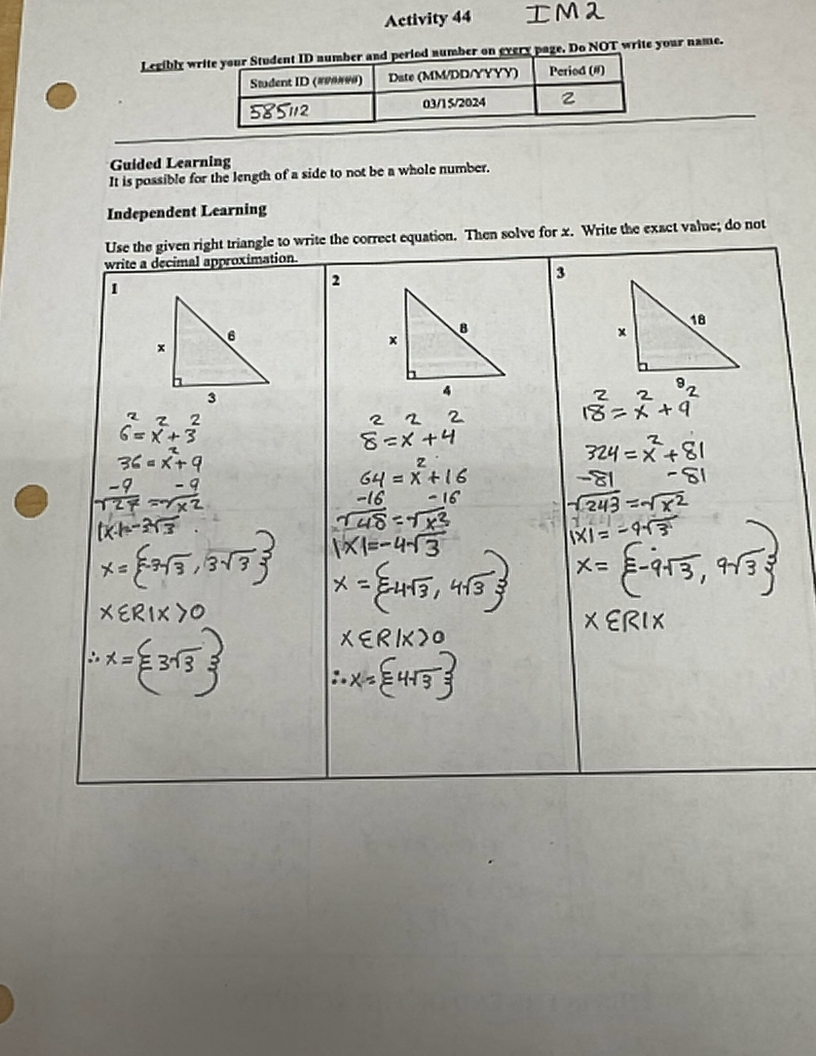 Activity 44 IM2
Legibly write your Student ID number and period number on every page. Do NOT write your name.
Student ID (######) Date (MM/DD/YYYY) Period (#)
585112 03/15/2024 2
Guided Learning
It is possible for the length of a side to not be a whole number.
Independent Learning
Use the given right triangle to write the correct equation. Then solve for x. Write the exact value; do not
write a decimal approximation.
1
x 6
3
6² = x² + 3²
36 = x² + 9
-9 -9
√27 = √x²
|x| = -3√3
x = {-3√3, 3√3}
x ∈ R | x > 0
∴ x = {3√3}
2
x 8
4
8² = x² + 4²
64 = x² + 16
-16 -16
√48 = √x²
|x| = -4√3
x = {-4√3, 4√3}
x ∈ R | x > 0
∴ x = {4√3}
3
x 18
9
18² = x² + 9²
324 = x² + 81
-81 -81
√243 = √x²
|x| = -9√3
x = {-9√3, 9√3}
x ∈ R | x